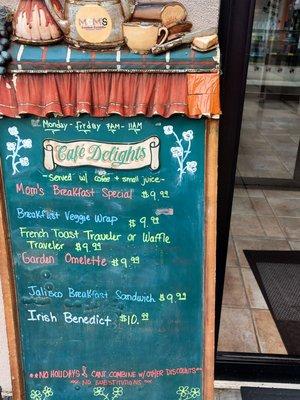 MOM'S
Monday - Friday 7AM - 11AM
Café Delights
~ Served w/ coffee & small juice ~
Mom's Breakfast Special $9.99
Breakfast Veggie Wrap $9.99
French Toast Traveler or Waffle
Traveler $9.99
Garden Omelette $9.99
Jalisco Breakfast Sandwich $9.99
Irish Benedict $10.99
**NO HOLIDAYS & CANT COMBINE W/OTHER DISCOUNTS
** NO SUBSTITUTIONS **